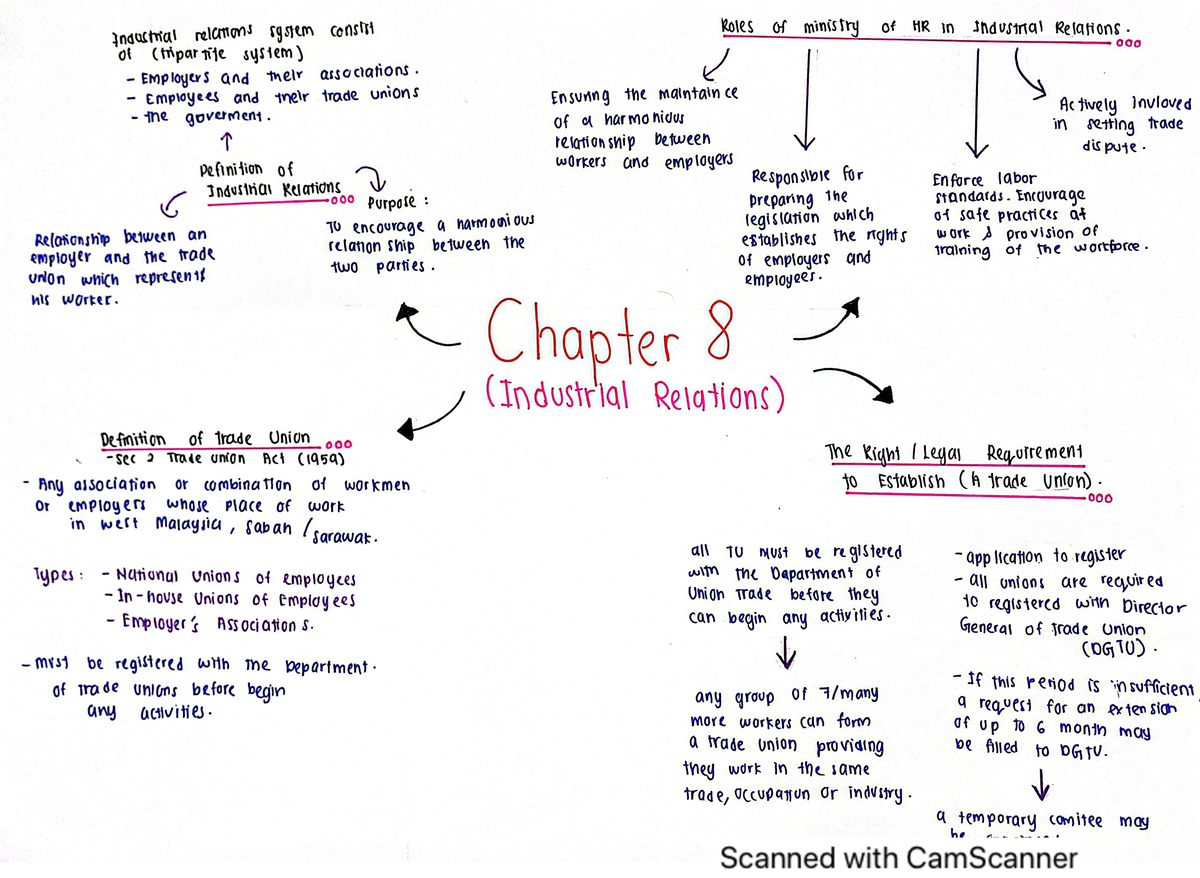 Industrial relations system consist
of (tripartite system)
- Employers and their associations.
- Employees and their trade unions
- the goverment.
Definition of
Industrial Relations
Relationship between an
employer and the trade
union which represents
his worker.
Purpose:
To encourage a harmonious
relationship between the
two parties.
Roles of ministry of HR in Industrial Relations.
Ensuring the maintaince
of a harmonious
relationship between
workers and employers
Responsible for
preparing the
legislation which
establishes the rights
of employers and
employees.
Enforce labor
standards. Encourage
of safe practices at
work & provision of
training of the workforce.
Actively invloved
in setting trade
dispute.
Chapter 8
(Industrial Relations)
Definition of Trade Union
- Sec 2 Trade union Act (1959)
- Any association or combination of workmen
or employers whose place of work
in west Malaysia, Sabah /
Sarawak.
Types: - National Unions of employees
- In-house Unions of Employees
- Employer's Associations.
- must be registered with the Department.
of Trade Unions before begin
any activities.
The Right / Legal Requirement
to Establish (A trade Union).
all TU must be registered
with the Department of
Union Trade before they
can begin any activities.
any group of 7/many
more workers can form
a trade union providing
they work in the same
trade, occupation or industry.
- application to register
- all unions are required
to registered with Director
General of Trade Union
(DGTU).
- If this period is insufficient
a request for an extension
of up to 6 month may
be filled to DGTU.
a temporary comitee may
Scanned with CamScanner